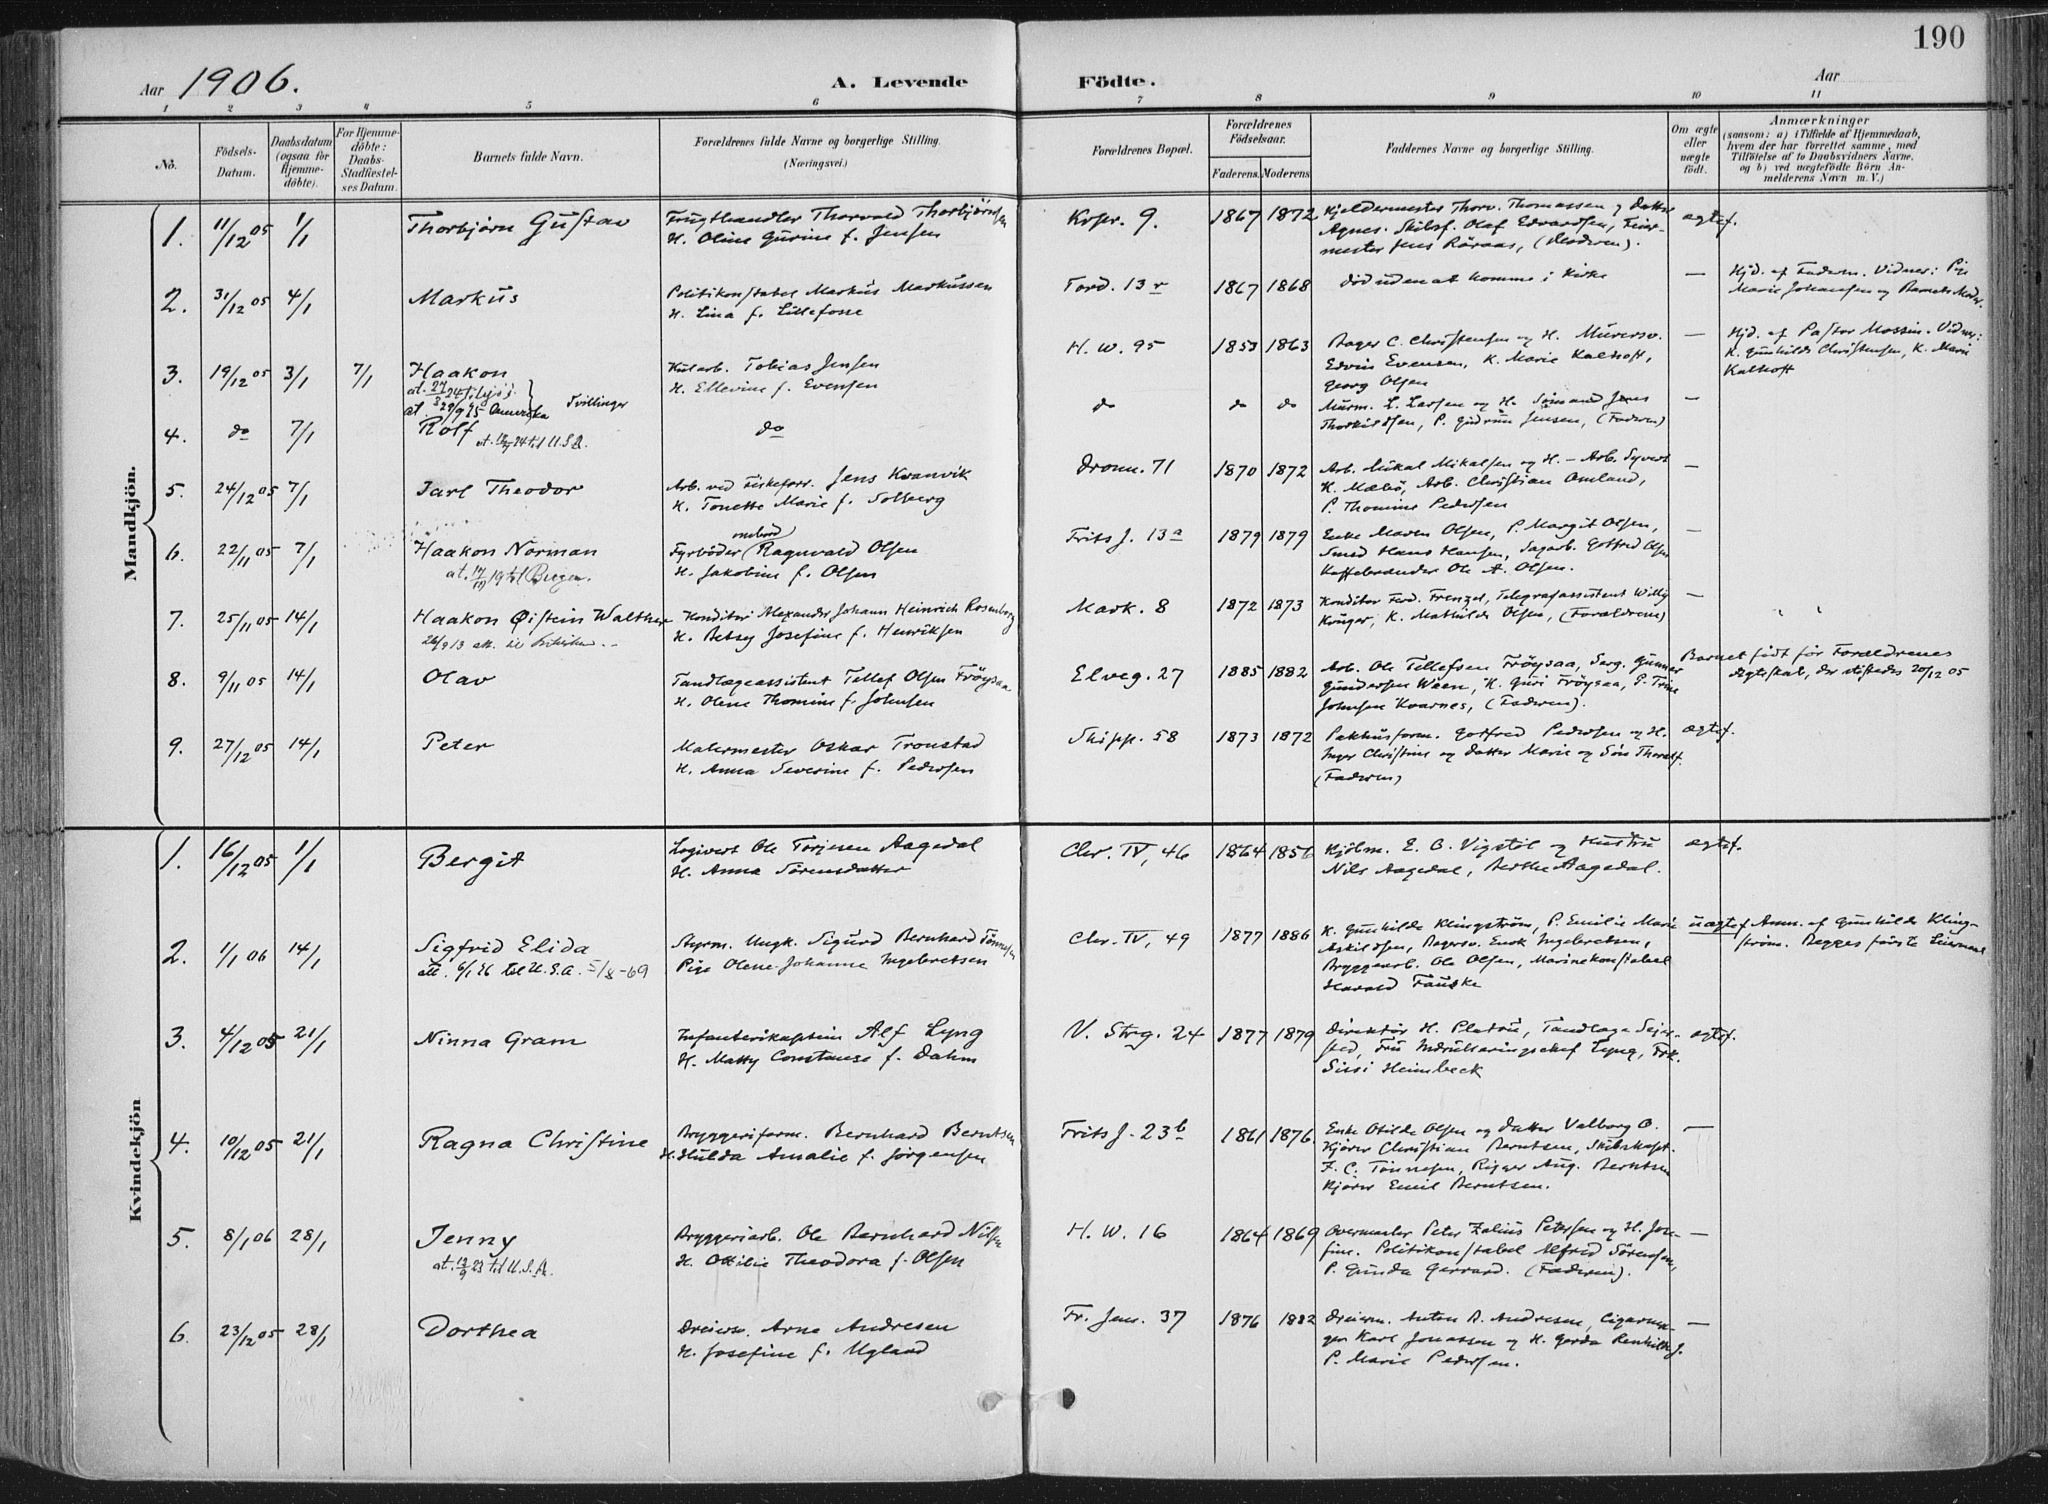 190
Aar 1906. A. Levende Födte. Aar
1 2 3 4 5 6 7 8 9 10 11
No.
Födsels-Datum.
Daabsdatum (ogsaa for Hjemme-döbte).
For Hjemme-döbte: Daabs-Stadfæstel-ses Datum.
Barnets fulde Navn.
Forældrenes fulde Navne og borgerlige Stilling. (Næringsvei.)
Forældrenes Bopæl.
Forældrenes Födselsaar.
Faderens. Moderens
Faddernes Navne og borgerlige Stilling.
Om ægte eller uægte födt.
Anmærkninger
(saasom: a) i Tilfælde af Hjemmedaab,
hvem der har forrettet samme, med
Tilföielse af to Daabsvidners Navne,
og b) ved uægtefödte Börn An-
melderens Navn m. V.)
Mandkjön.
1. 11/12 05 1/1 Thorbjörn Gustav
Frugthandler Thorvald Thorbjörnsen
H. Oline Gurine f. Jensen
Kvpr. 9. 1867 1872
Kjeldermester Thorv. Thomassen og Datter
Agnes. Skibsf. Olaf Edvardsen, Feier-
mester Jens Röraas, (Moderen).
ægtef.
2. 31/12 05 4/1 Markus
Politikonstabel Markus Markussen
H. Lina f. Lillefosse
Tord. 13 r 1867 1868
Död uden at komme i Kirke
—
Hjd. af Faderen. Vidner: Pige
Marie Johansen og Barnets Moder.
3. 19/12 05 3/1 7/1 Haakon
Tvillinger
Tobias Jensen
H. Ellevine f. Evensen
H. W. 95 1853 1863
Bager C. Christensen og H. Murersv.
Edvin Evensen, K. Marie Kalhoff,
Georg Olsen
—
Hjd. af Pastor Mossin. Vidner:
K. Gunhilde Christensen, K. Marie
Kalhoff
4. do 7/1 Rolf
at. 24 til U.S.A.
do
do do do
Murm. L. Larsen og H. Sömand Jens
Thorkildsen, P. Gudrun Jensen, (Faderen)
—
5. 24/12 05 7/1 Jarl Theodor
Arb. ved Fiskeforr. Jens Kvanvik
H. Tonette Marie f. Solberg
Dronn. 71 1870 1872
Arb. Mikal Mikalsen og H. – Arb. Syvert
K. Mæbö, Arb. Christian Omland,
P. Thomine Pedersen
—
6. 22/11 05 7/1 Haakon Norman
at. 19 til Bergen.
Fyrböder ombord Ragnvald Olsen
H. Jakobine f. Olsen
Frits J. 13 a 1879 1879
Enke Maren Olsen, P. Margit Olsen,
Smed Hans Hansen, Sagarb. Gotfred Olsen
Kaffebrænder Ole A. Olsen.
—
7. 25/11 05 14/1 Haakon Öistein Walther
Konditor Alexander Johann Heinrich Rosenborg
H. Betsy Josefine f. Henriksen
Mark. 8 1872 1873
Konditor Ferd. Frenzel, Telegrafassistent Willy
Krüger, K. Mathilde Olsen, (Forældrene)
—
8. 9/11 05 14/1 Olav
Tandlægeassistent Tellef Olsen Fröysaa
H. Olene Thomine f. Johnsen
Elveg. 27 1885 1882
Arb. Ole Tellefsen Fröysaa, Serg. Gunner
Gundersen Waen, K. Guri Fröysaa, P. Trine
Johnsen Kvarnes, (Faderen).
Barnet födt för Forældrenes
Ægteskab, der stiftedes 20/12 05
9. 27/12 05 14/1 Peter
Malermester Oskar Tronstad
H. Anna Severine f. Pedersen
Skipp. 58 1873 1872
Pakhusform. Gotfred Pedersen og H.
Inger Christine og Datter Marie og Sön Thoralf.
(Faderen)
ægtef.
Kvindekjön
1. 16/12 05 1/1 Bergit
Logivert Ole Torjesen Aagedal
H. Anna Sörensdatter
Chr. IV, 46 1864 1856
Kjölm. E. O. Vigstöl og Hustru
Nils Aagedal, Berthe Aagedal.
ægtef.
2. 1/1 06 14/1 Sigfrid Elida
att. 6/1 26 til U.S.A. 5/8-69
Styrm. Ungk. Sigurd Bernhard Tönnesen
Pige Olene Johanne Ingebretsen
Chr. IV, 49 1877 1886
K. Gunhilde Klingström, P. Emilie Marie
Askildsen, Bagersv. Enok Ingebretsen,
Bryggearb. Ole Olsen, Marinekonstabel
Harald Fauske
uægtef.
Anm. af Gunhilde Kling-
ström. Begges förste Leiermaal
3. 4/12 05 21/1 Ninna Gram
Infanterikaptein Alf Lyng
H. Matty Constanse f. Dahm
V. Strg. 24 1877 1879
Direktör H. Platou, Tandlæge Seier-
sted, Fru Indrulleringschef Lyng, Frk.
Sissi Heimbeck
ægtef.
4. 10/12 05 21/1 Ragna Christine
Bryggeriform. Bernhard Berntsen
H. Hulda Amalie f. Jörgensen
Frits J. 23 b 1861 1876.
Enke Otilde Olsen og Datter Valborg O.
Kjörer Christian Berntsen, Skibskapt.
F. C. Tönnesen, Rigger Aug. Berntsen
Kjörer Emil Berntsen.
—
5. 8/1 06 28/1 Jenny
at. 12/9 23 til U.S.A.
Bryggeriarb. Ole Bernhard Nilsen
H. Ottilie Theodora f. Olsen
H. W. 16 1864 1869
Peter Julius Petersen og H. Jose-
fine. Politikonstabel Alfred Sörensen,
P. Gunda Gerrard. (Faderen).
—
6. 23/12 05 28/1 Dorthea
Dreiersv. Arne Andresen
H. Josefine f. Ugland
Fr. Jen. 37 1876 1882
Dreierm. Anton B. Andresen, Cigarma-
ger Karl Jonassen og H. Gerda Renhilde J.
P. Marie Pedersen.
—